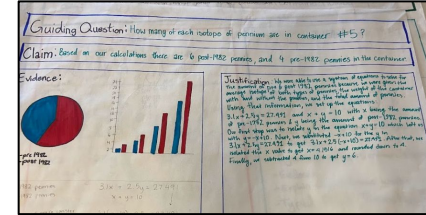 Guiding Question: How many of each isotope of pennium are in container #5?
Claim: Based on our calculations there are 6 post-1982 pennies, and 4 pre-1982 pennies in the container
Evidence:
-pre 1982
-post 1982
3.1x + 2.5y = 27.49
x + y = 10
Justification: We were able to use a system of equations to solve for
the amount of pre & post 1982 pennies because we were given the
average weight of both types of pennies, the weight of the container
with and without the pennies, and the total amount of pennies.
Using this information, we set up the equations
3.1x + 2.5y = 27.491 and x + y = 10 with x being the amount
of pre-1982 pennies & y being the amount of post-1982 pennies.
Our first step was to isolate y in the equation x+y=10 which left us
with y=-x+10. Next, we substituted -x+10 for the y in
3.1x + 2.5y = 27.491 to get 3.1x + 2.5(-x+10) = 27.491. After that, we
isolated the x value to get x = and rounded down to 4.
Finally, we subtracted 4 from 10 to get y=6.